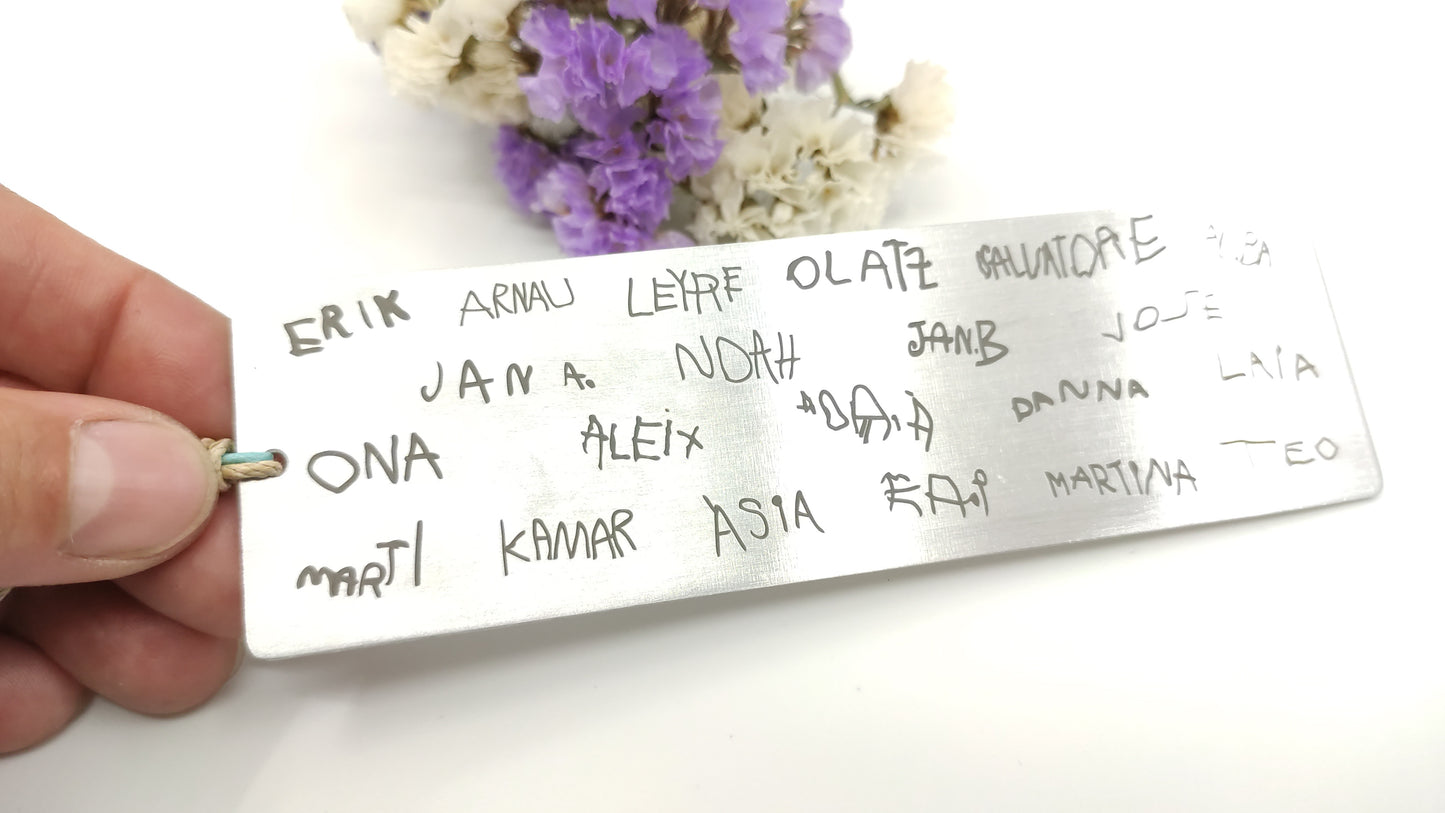 ERIK ARNAU LEYRE OLATZ SALVATORE ALBA
JAN A. NOAH JAN.B JOSE
ONA ALEIX DANNA LAIA
MARTI KAMAR ASIA MARTINA TEO